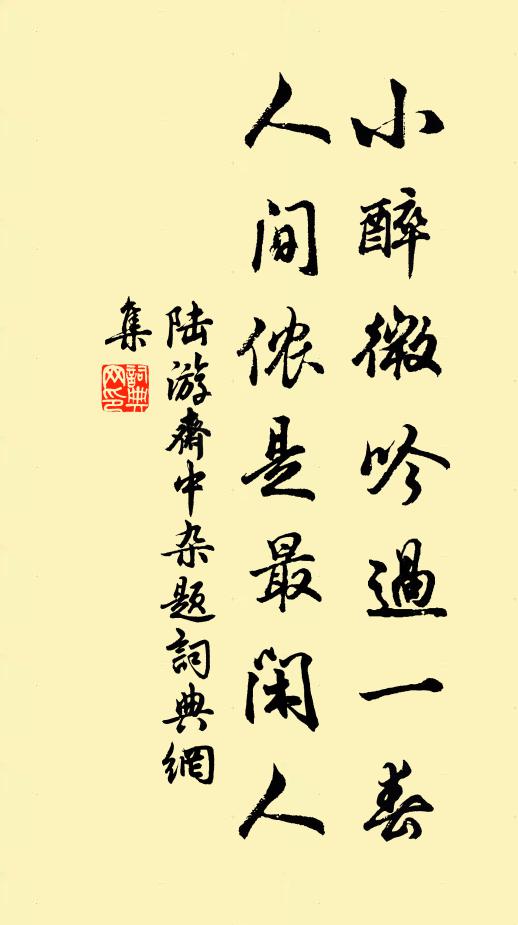 小醉微吟過一春
人间侬是最闲人
陆游斋中杂题詞典網
集
詞典網印